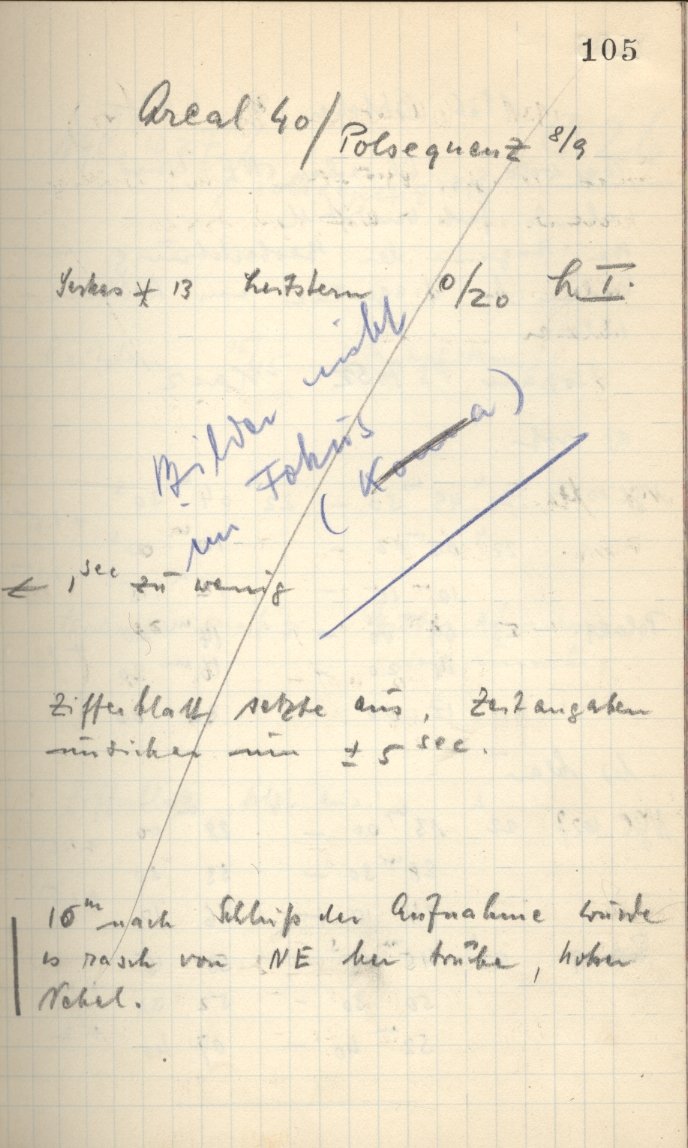 105
Areal 40/Polsequenz 8/9
Yerkes * 13 Leitstern 0/20 L I.
Bilder nicht
im Fokus
(Koma)
← 1 sec zu wenig
Zifferblatt setzte aus, Zeitangaben
unsicher um ± 5 sec.
10 m nach Schluß der Aufnahme wurde
es rasch von NE her trübe, hoher
Nebel.